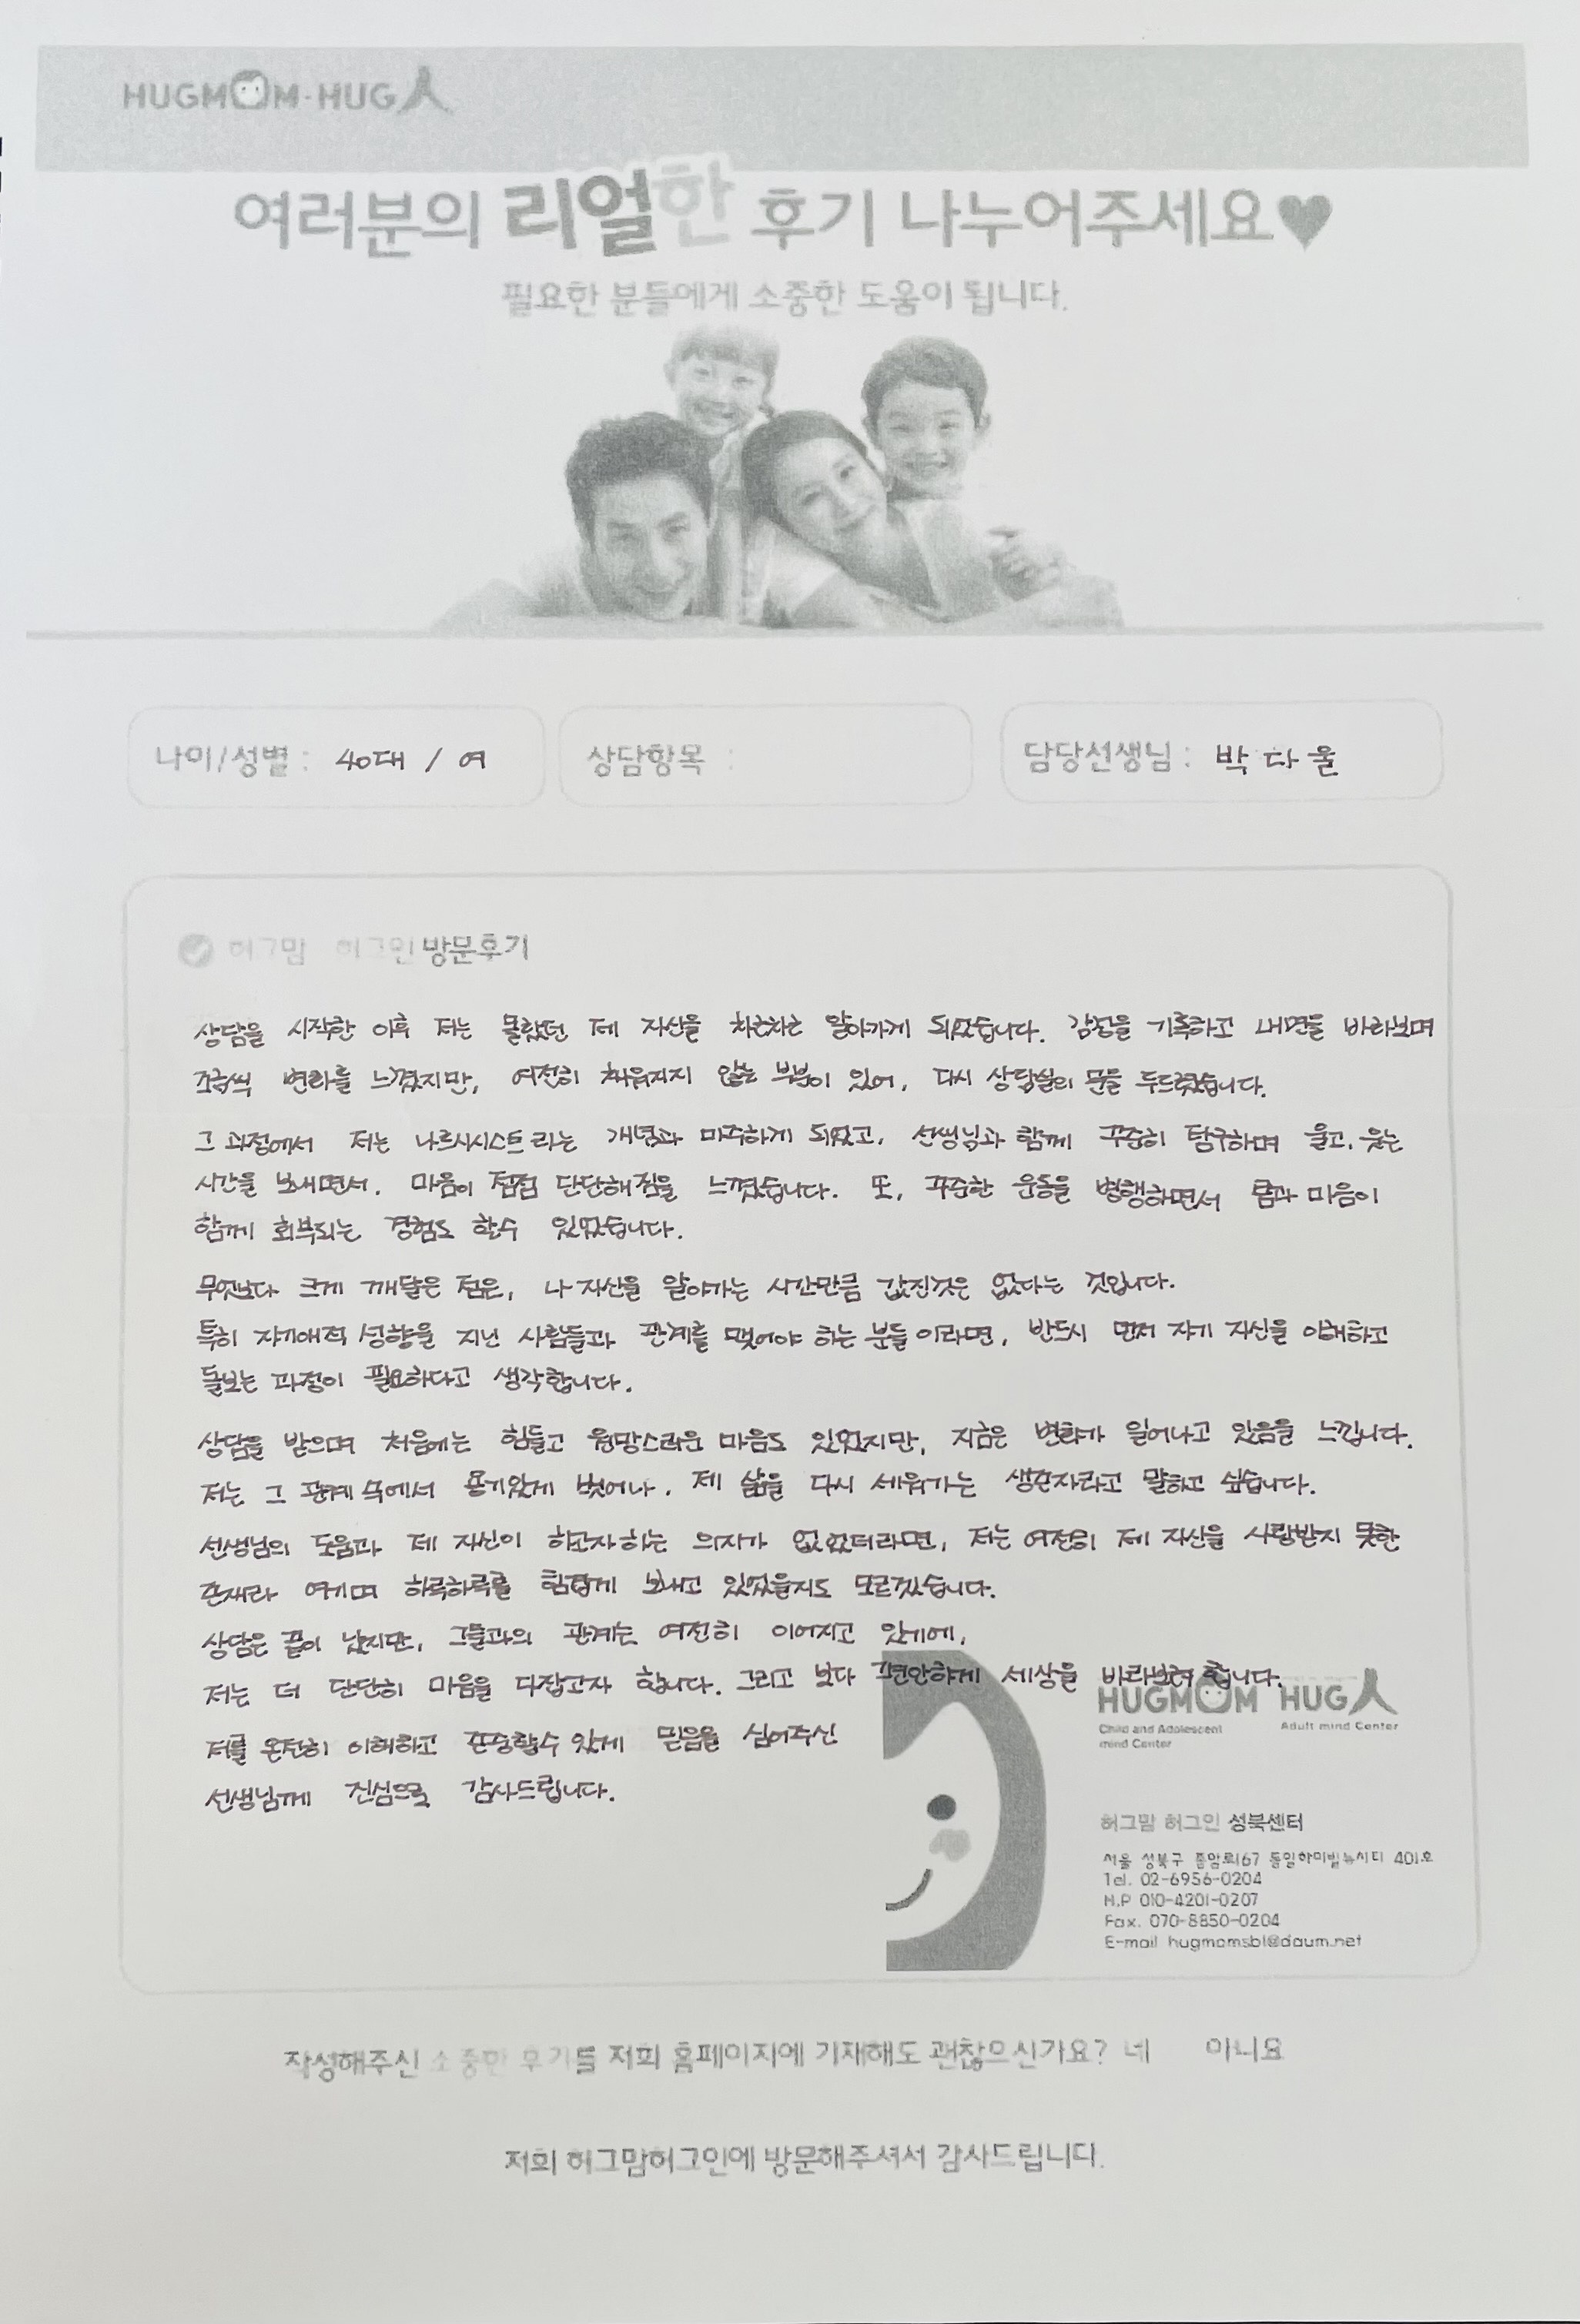 HUGMOM·HUG人
여러분의 리얼한 후기 나누어주세요♥
필요한 분들에게 소중한 도움이 됩니다.
나이/성별 : 40대 / 여
상담항목 :
담당선생님 : 박다울
허그맘 허그인 방문후기
상담을 시작한 이후 저는 몰랐던 제 자신을 차근차근 알아가게 되었습니다. 감정을 기록하고 내면을 바라보며
조금씩 변화를 느꼈지만, 여전히 채워지지 않는 부분이 있어, 다시 상담실의 문을 두드렸습니다.
그 과정에서 저는 나르시시스트라는 개념과 마주하게 되었고, 선생님과 함께 꾸준히 탐구하며 울고, 웃는
시간을 보내면서, 마음이 점점 단단해짐을 느꼈습니다. 또, 꾸준한 운동을 병행하면서 몸과 마음이
함께 회복되는 경험도 할수 있었습니다.
무엇보다 크게 깨달은 점은, 나 자신을 알아가는 시간만큼 값진것은 없다는 것입니다.
특히 자기애적 성향을 지닌 사람들과 관계를 맺어야 하는 분들 이라면, 반드시 먼저 자기 자신을 이해하고
돌보는 과정이 필요하다고 생각합니다.
상담을 받으며 처음에는 힘들고 원망스러운 마음도 있었지만, 지금은 변화가 일어나고 있음을 느낍니다.
저는 그 관계 속에서 용기있게 벗어나, 제 삶을 다시 세워가는 생존자라고 말하고 싶습니다.
선생님의 도움과 제 자신이 하고자하는 의지가 없었더라면, 저는 여전히 제 자신을 사랑받지 못한
존재라 여기며 하루하루를 힘겹게 보내고 있었을지도 모르겠습니다.
상담은 끝이 났지만, 그들과의 관계는 여전히 이어지고 있기에,
저는 더 단단히 마음을 다잡고자 합니다. 그리고 보다 편안하게 세상을 바라보려 합니다.
저를 온전히 이해하고 존중할수 있게 믿음을 심어주신
선생님께 진심으로 감사드립니다.
HUGMOM HUG人
Child and Adolescent mind Center
Adult mind Center
허그맘 허그인 성북센터
서울 성북구 종암로167 동일하이빌뉴시티 401호
Tel. 02-6956-0204
H.P 010-4201-0207
Fax. 070-8850-0204
E-mail hugmomsbl@daum.net
작성해주신 소중한 후기를 저희 홈페이지에 기재해도 괜찮으신가요? 네 아니요
저희 허그맘허그인에 방문해주셔서 감사드립니다.